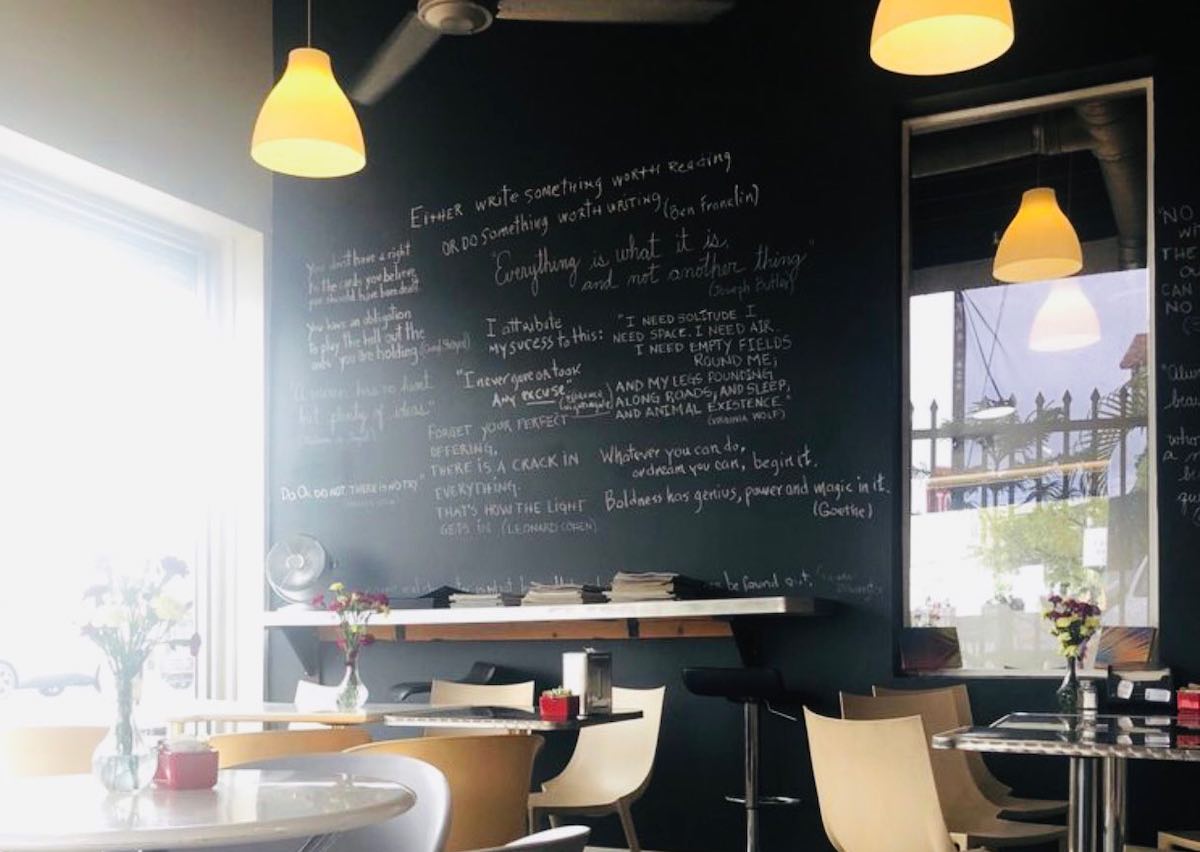 EITHER WRITE SOMETHING WORTH READING
OR DO SOMETHING WORTH WRITING (Ben Franclin)
"Everything is what it is,
and not another thing"
(Joseph Butler)
You don't have a right
to the cards you believe
you should have been dealt
You have an obligation
to play the hell out the
you are holding
plenty of ideas."
DO OR DO NOT. THERE IS NO TRY"
I attribute
my sucess to this:
"I never gave or took
Any excuse"
"I NEED SOLITUDE I
NEED SPACE. I NEED AIR.
I NEED EMPTY FIELDS
ROUND ME;
AND MY LEGS POUNDING
ALONG ROADS; AND SLEEP;
AND ANIMAL EXISTENCE."
(VIRGINIA WOLF)
FORGET YOUR PERFECT
OFFERING,
THERE IS A CRACK IN
EVERYTHING.
THAT'S HOW THE LIGHT
GETS IN (LEONARD COHEN)
Whatever you can do,
or dream you can, begin it.
Boldness has genius, power and magic in it.
(Goethe)
be found out.
"NO
WIT
THE
CAN
NO